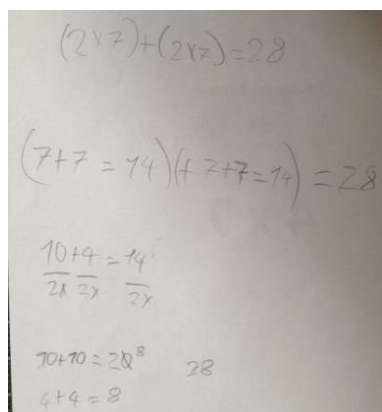 (2x7)+(2x7)=28
(7+7=14)(+7+7=14)=28
10+4=14
2x 2x 2x
10+10=20 8 28
4+4=8